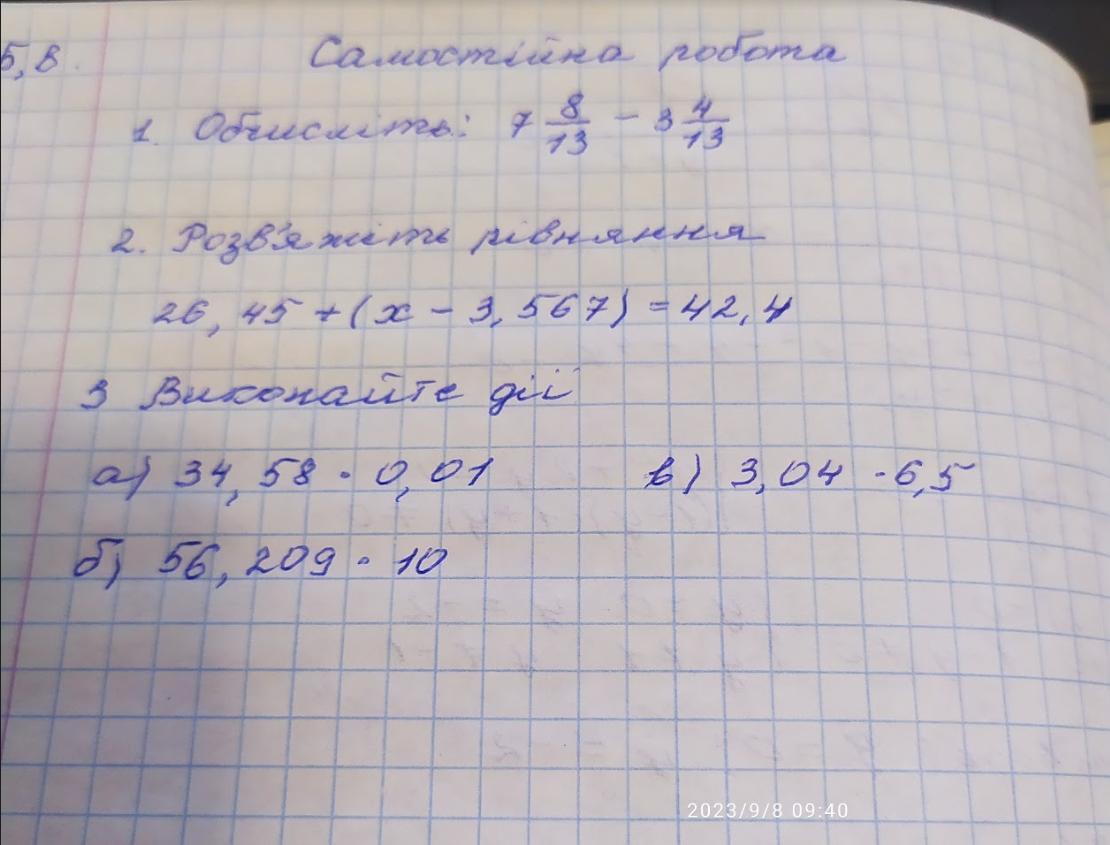 5,в. Самостійна робота
1. Обчисліть: 7 8/13 - 3 4/13
2. Розв'яжіть рівняння
26,45 + (x - 3,567) = 42,4
3 Виконайте дії
а) 34,58 · 0,01 в) 3,04 · 6,5
б) 56,209 · 10
2023/9/8 09:40